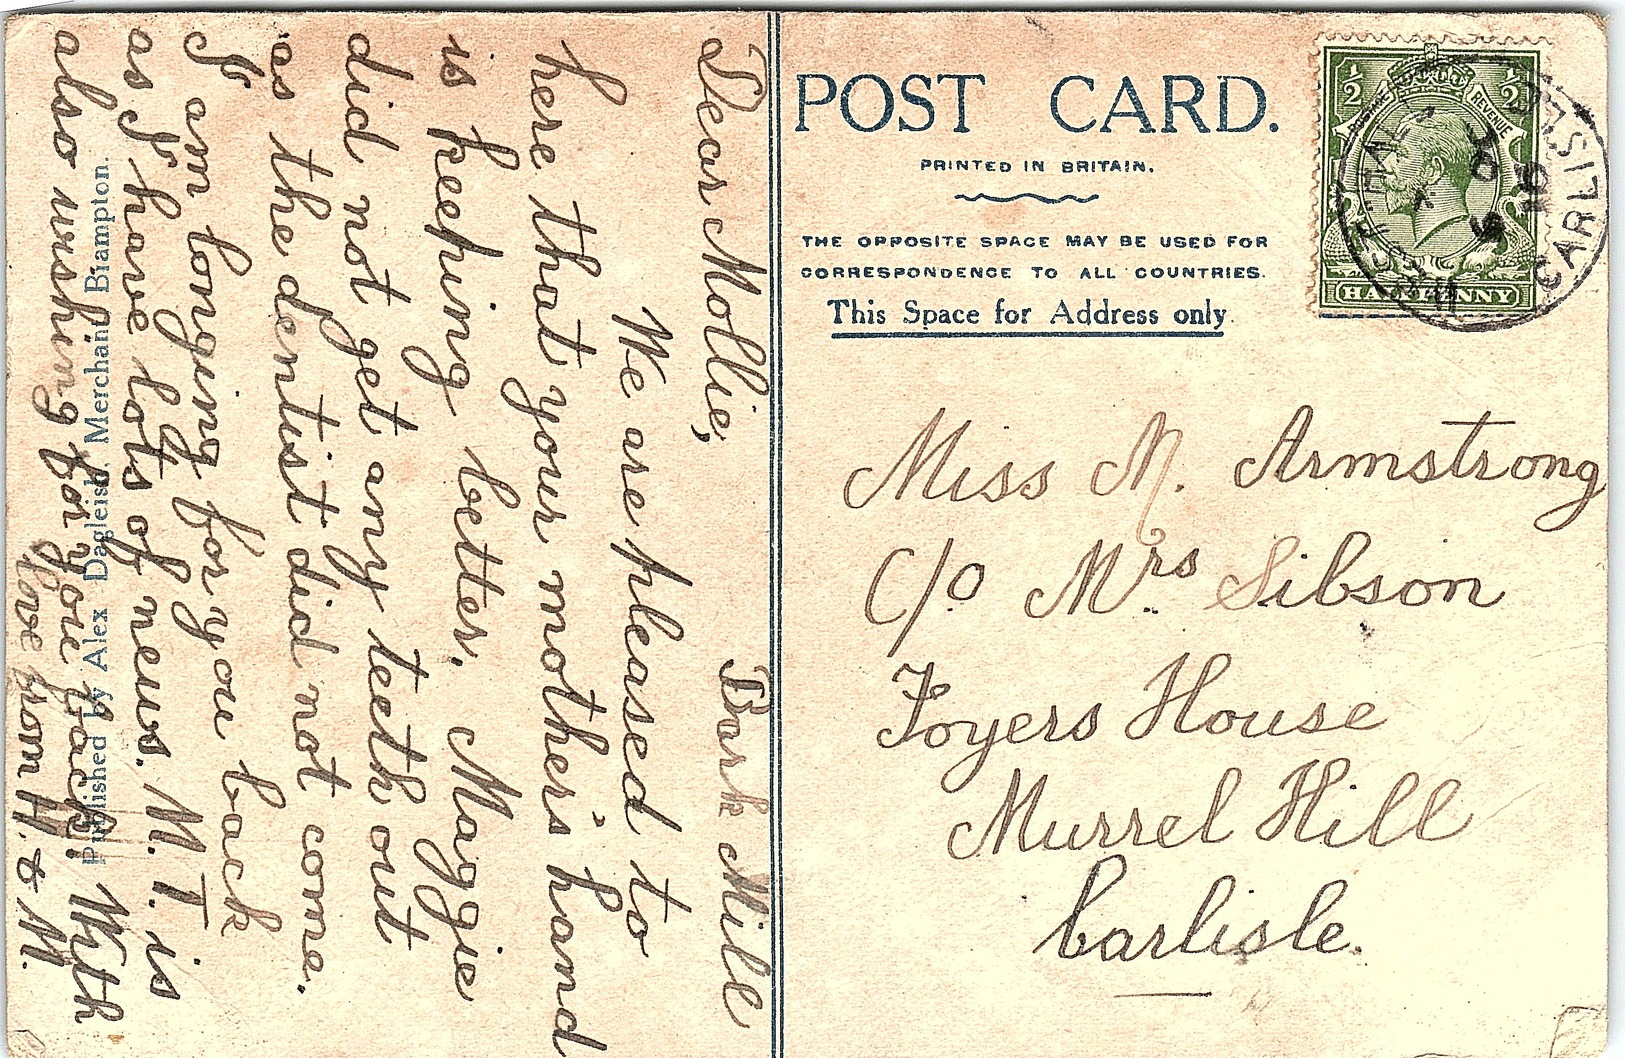 Bark Mill
Dear Mollie,
We are pleased to
here that your mother's hand
is keeping better. Maggie
did not get any teeth out
as the dentist did not come.
I am longing for you back
as I have lots of news. M. T. is
also wishing for you back. With
love from H. & M.
Published by Alex Dagleish, Merchant Brampton.
POST CARD.
PRINTED IN BRITAIN.
THE OPPOSITE SPACE MAY BE USED FOR
CORRESPONDENCE TO ALL COUNTRIES.
This Space for Address only
½ ½
POSTAGE REVENUE
HALFPENNY
CARLISLE
16
Miss M. Armstrong
C/o Mrs Sibson
Foyers House
Murrel Hill
Carlisle.